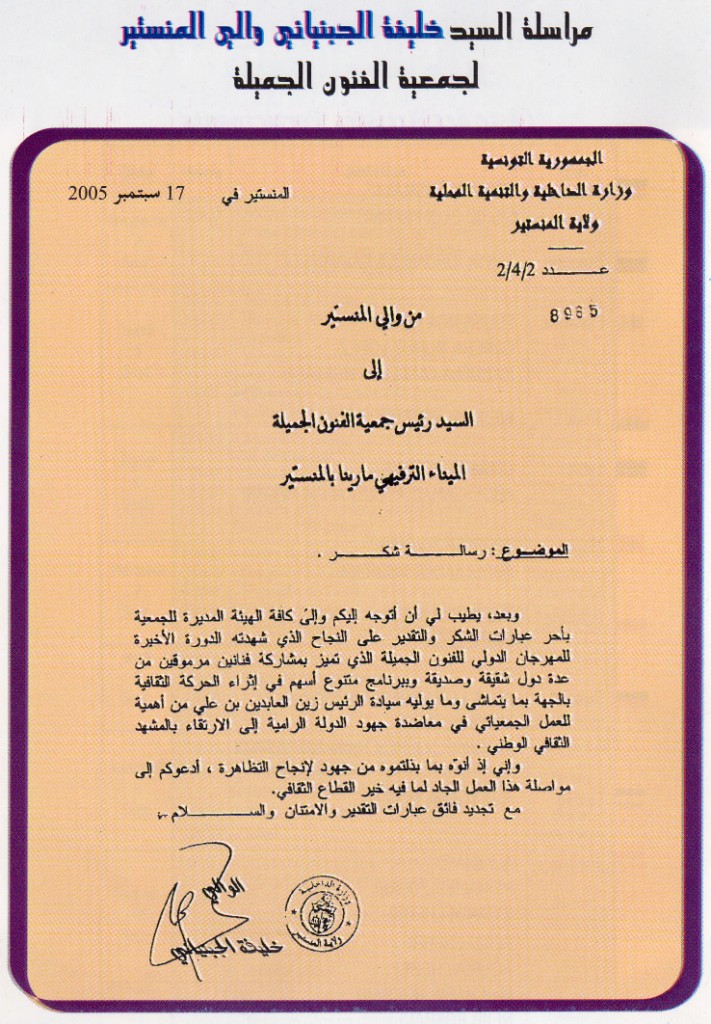 مراسلة السيد خليفة الجبنياني والي المنستير
لجمعية الفنون الجميلة
الجمهورية التونسية
وزارة الداخلية والتنمية المحلية
ولاية المنستير
المنستير في 17 سبتمبر 2005
عـــــدد 2/4/2
8965
من والي المنستير
إلى
السيد رئيس جمعية الفنون الجميلة
الميناء الترفيهي مارينا بالمنستير
الموضـــوع : رسالـــــــة شكـــــــر .
وبعد، يطيب لي أن أتوجه إليكم وإلى كافة الهيئة المديرة للجمعية
بأحر عبارات الشكر والتقدير على النجاح الذي شهدته الدورة الأخيرة
للمهرجان الدولي للفنون الجميلة الذي تميز بمشاركة فنانين مرموقين من
عدة دول شقيقة وصديقة وببرنامج متنوع أسهم في إثراء الحركة الثقافية
بالجهة بما يتماشى وما يوليه سيادة الرئيس زين العابدين بن علي من أهمية
للعمل الجمعياتي في معاضدة جهود الدولة الرامية إلى الارتقاء بالمشهد
الثقافي الوطني .
وإني إذ أنوّه بما بذلتموه من جهود لإنجاح التظاهرة ، أدعوكم إلى
مواصلة هذا العمل الجاد لما فيه خير القطاع الثقافي.
مع تجديد فائق عبارات التقدير والامتنان والســـــــــلام
الوالي
خليفة الجبنياني
وزارة الداخلية
ولاية المنستير